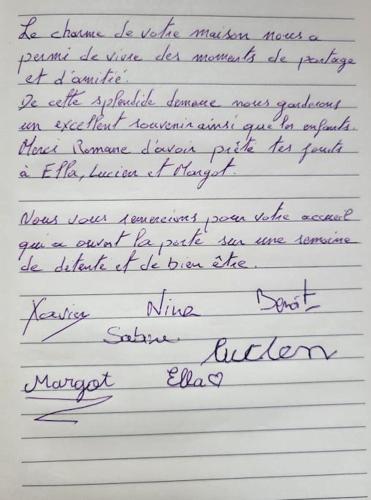 Le charme de votre maison nous a
permi de vivre des moments de partage
et d'amitié.
De cette splendide demeure nous garderons
un excellent souvenir ainsi que les enfants.
Merci Romane d'avoir prêté tes jouets
à Ella, Lucien et Margot.
Nous vous remercions pour votre accueil
qui a ouvert la porte sur une semaine
de détente et de bien être.
Xavier Nina Benoît
Sabine Lucien
Margot Ella♡